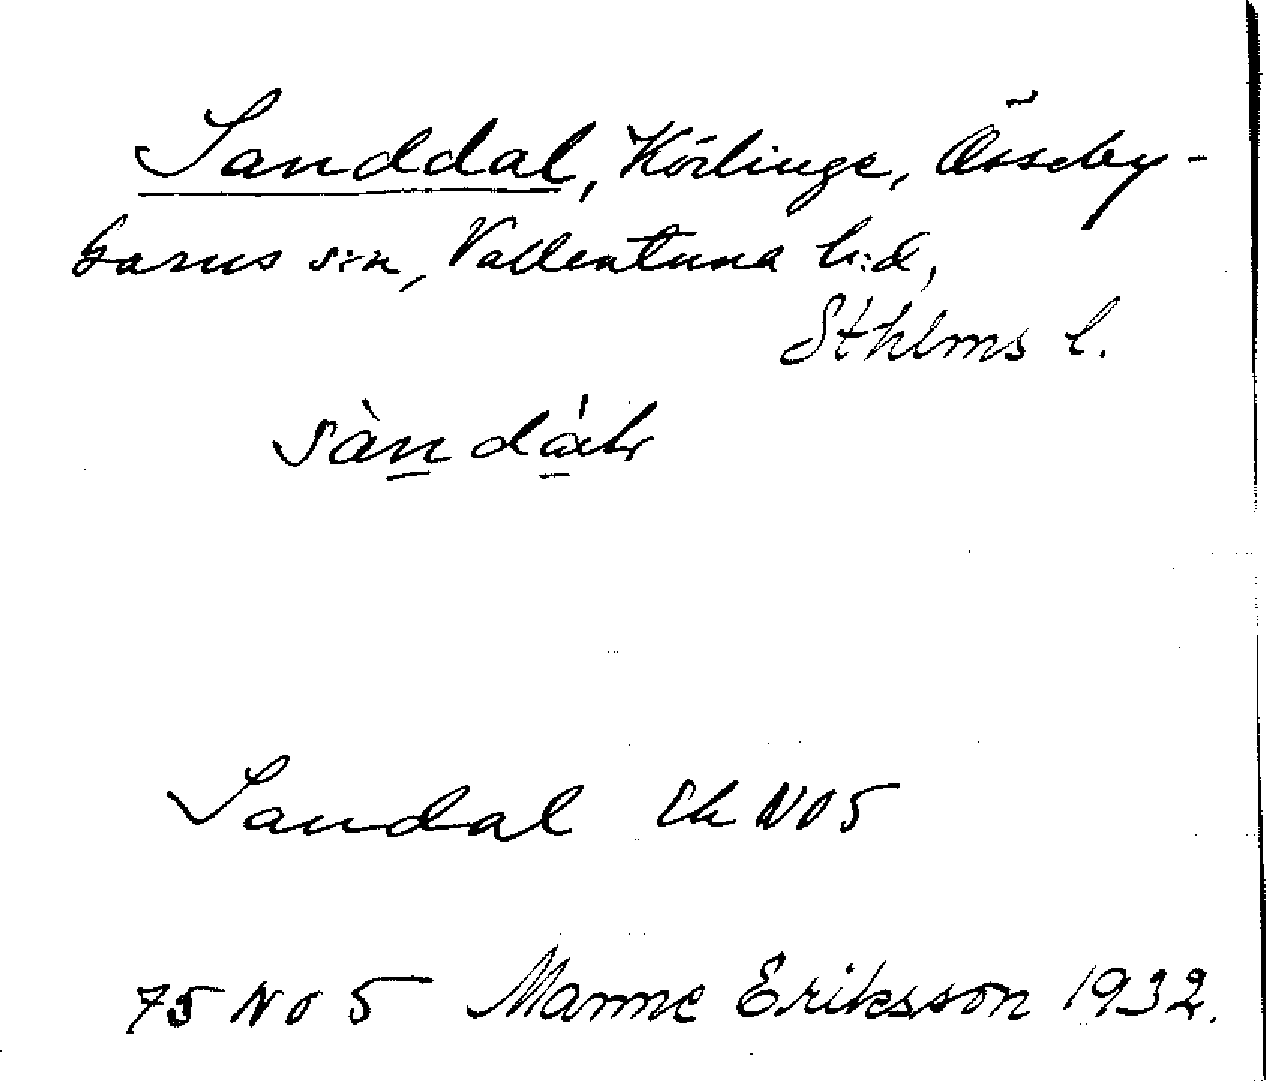 Sanddal, Körlinge, Össeby-
Garns sn, Vallentuna h:d,
Sthlms l.
Sandal Ek NO5
75 NO 5 Manne Eriksson 1932.